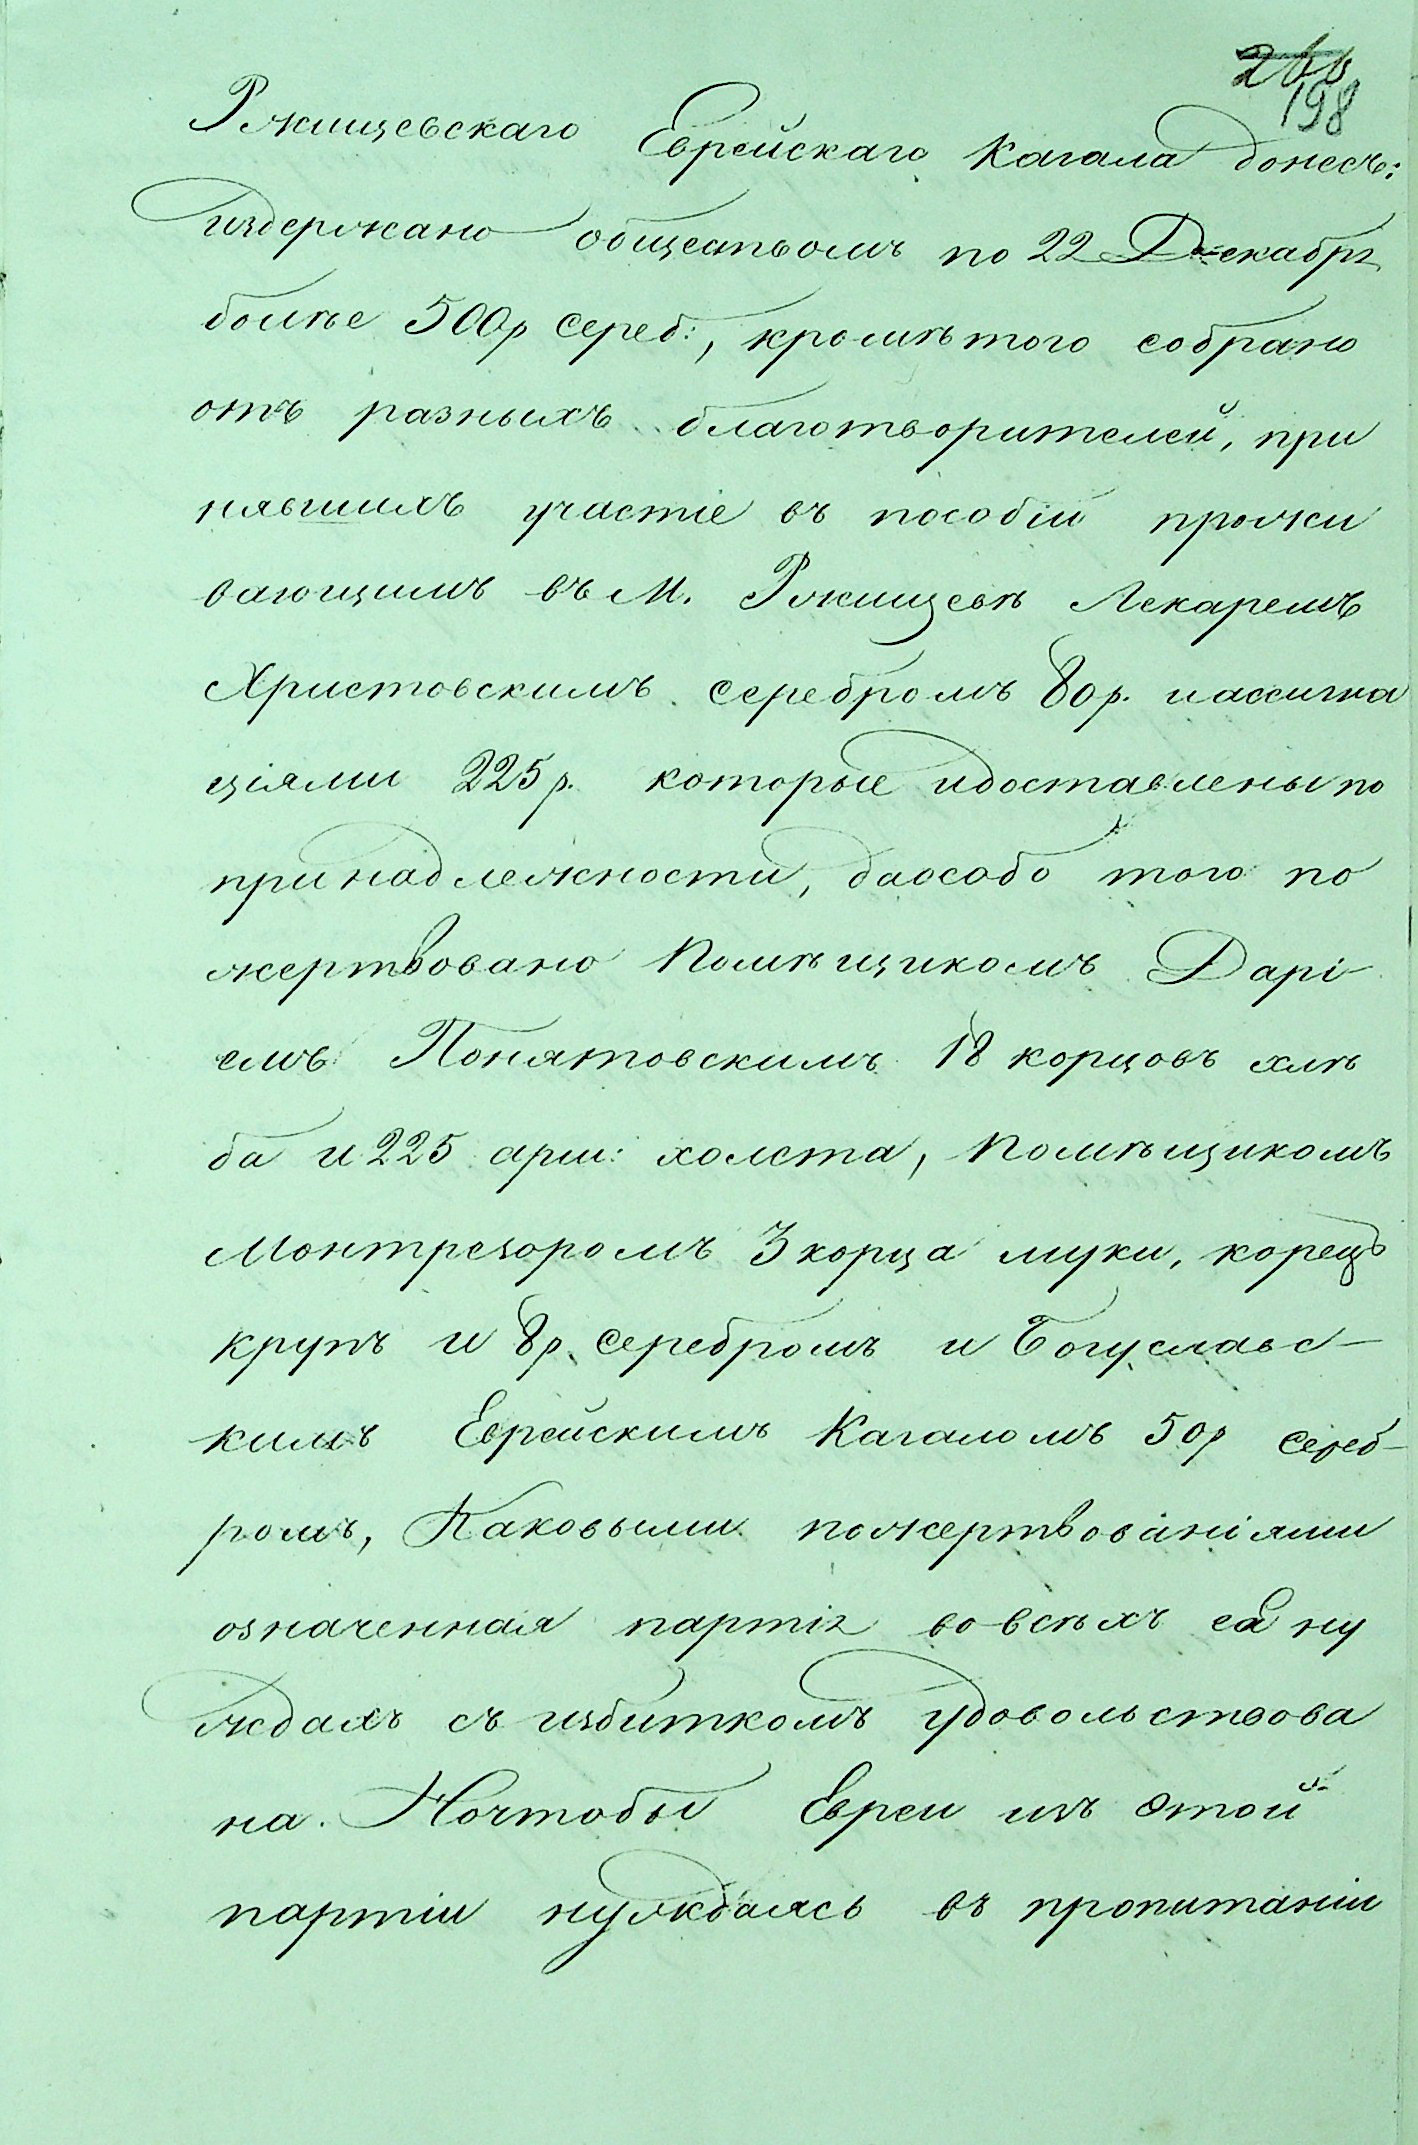 266
198
Ржищевскаго Еврейскаго Кагала донесъ:
издержано обществомъ по 22 Декабря
болѣе 500р Сереб:, кромѣ того собрано
отъ разныхъ благотворителей, при
нявшихъ участіе въ пособіи прожи
вающимъ въ М. Ржищевѣ Лекаремъ
Христовскимъ серебромъ 80р. и ассигна
ціями 225р. которые и доставлены по
принадлежности, да особо того по
жертвовано Помѣщикомъ Дарі-
емъ Понятовскимъ 18 корцовъ хлѣ
ба и 225 арш: холста, Помѣщикомъ
Монтрезоромъ 3 корца муки, корецъ
крупъ и 8р. Серебромъ и Богуславс-
кимъ Еврейскимъ Кагаломъ 50р Сереб-
ромъ, Каковыми пожертвованіями
означенная партія во всѣхъ ея ну
ждахъ съ избиткомъ удовольствова
на. Но чтобы Евреи изъ Этой
партіи нуждаясь въ пропитаніи